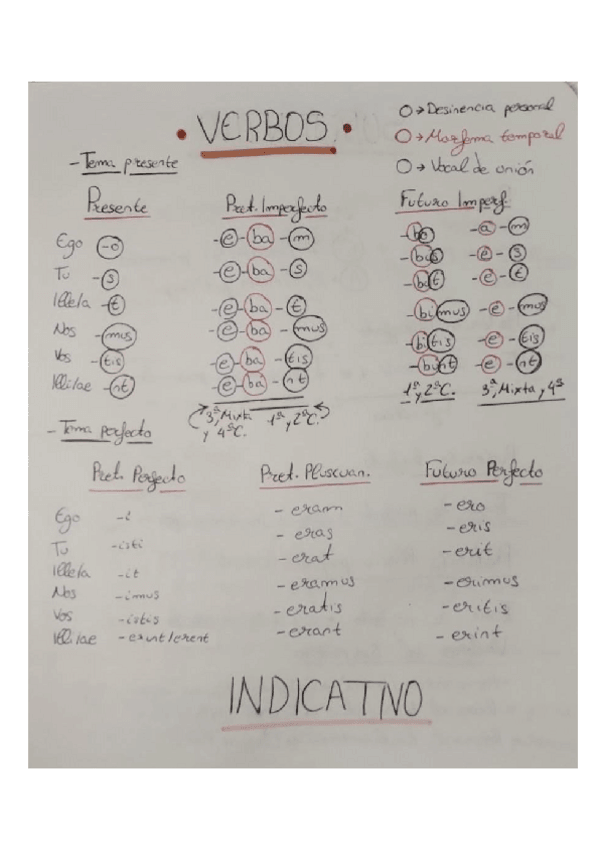 • VERBOS •
O→Desinencia personal
O→Morfema temporal
O→Vocal de unión
-Tema presente
Presente Pret. Imperfecto Futuro Imperf.
Ego -o -e-ba-m -bo -a-m
Tu -s -e-ba-s -bis -e-s
Ille/a -t -e-ba-t -bit -e-t
Nos -mus -e-ba-mus -bimus -e-mus
Vos -tis -e-ba-tis -bitis -e-tis
Illi/ae -nt -e-ba-nt -bunt -e-nt
3ª, Mixta y 4ªC. 1ª y 2ªC. 1ª y 2ªC. 3ª, Mixta y 4ª
- Tema perfecto
Pret. Perfecto Pret. Pluscuan. Futuro Perfecto
Ego -i -eram -ero
Tu -isti -eras -eris
Ille/a -it -erat -erit
Nos -imus -eramus -erimus
Vos -istis -eratis -eritis
Illi/ae -erunt/erent -erant -erint
INDICATIVO